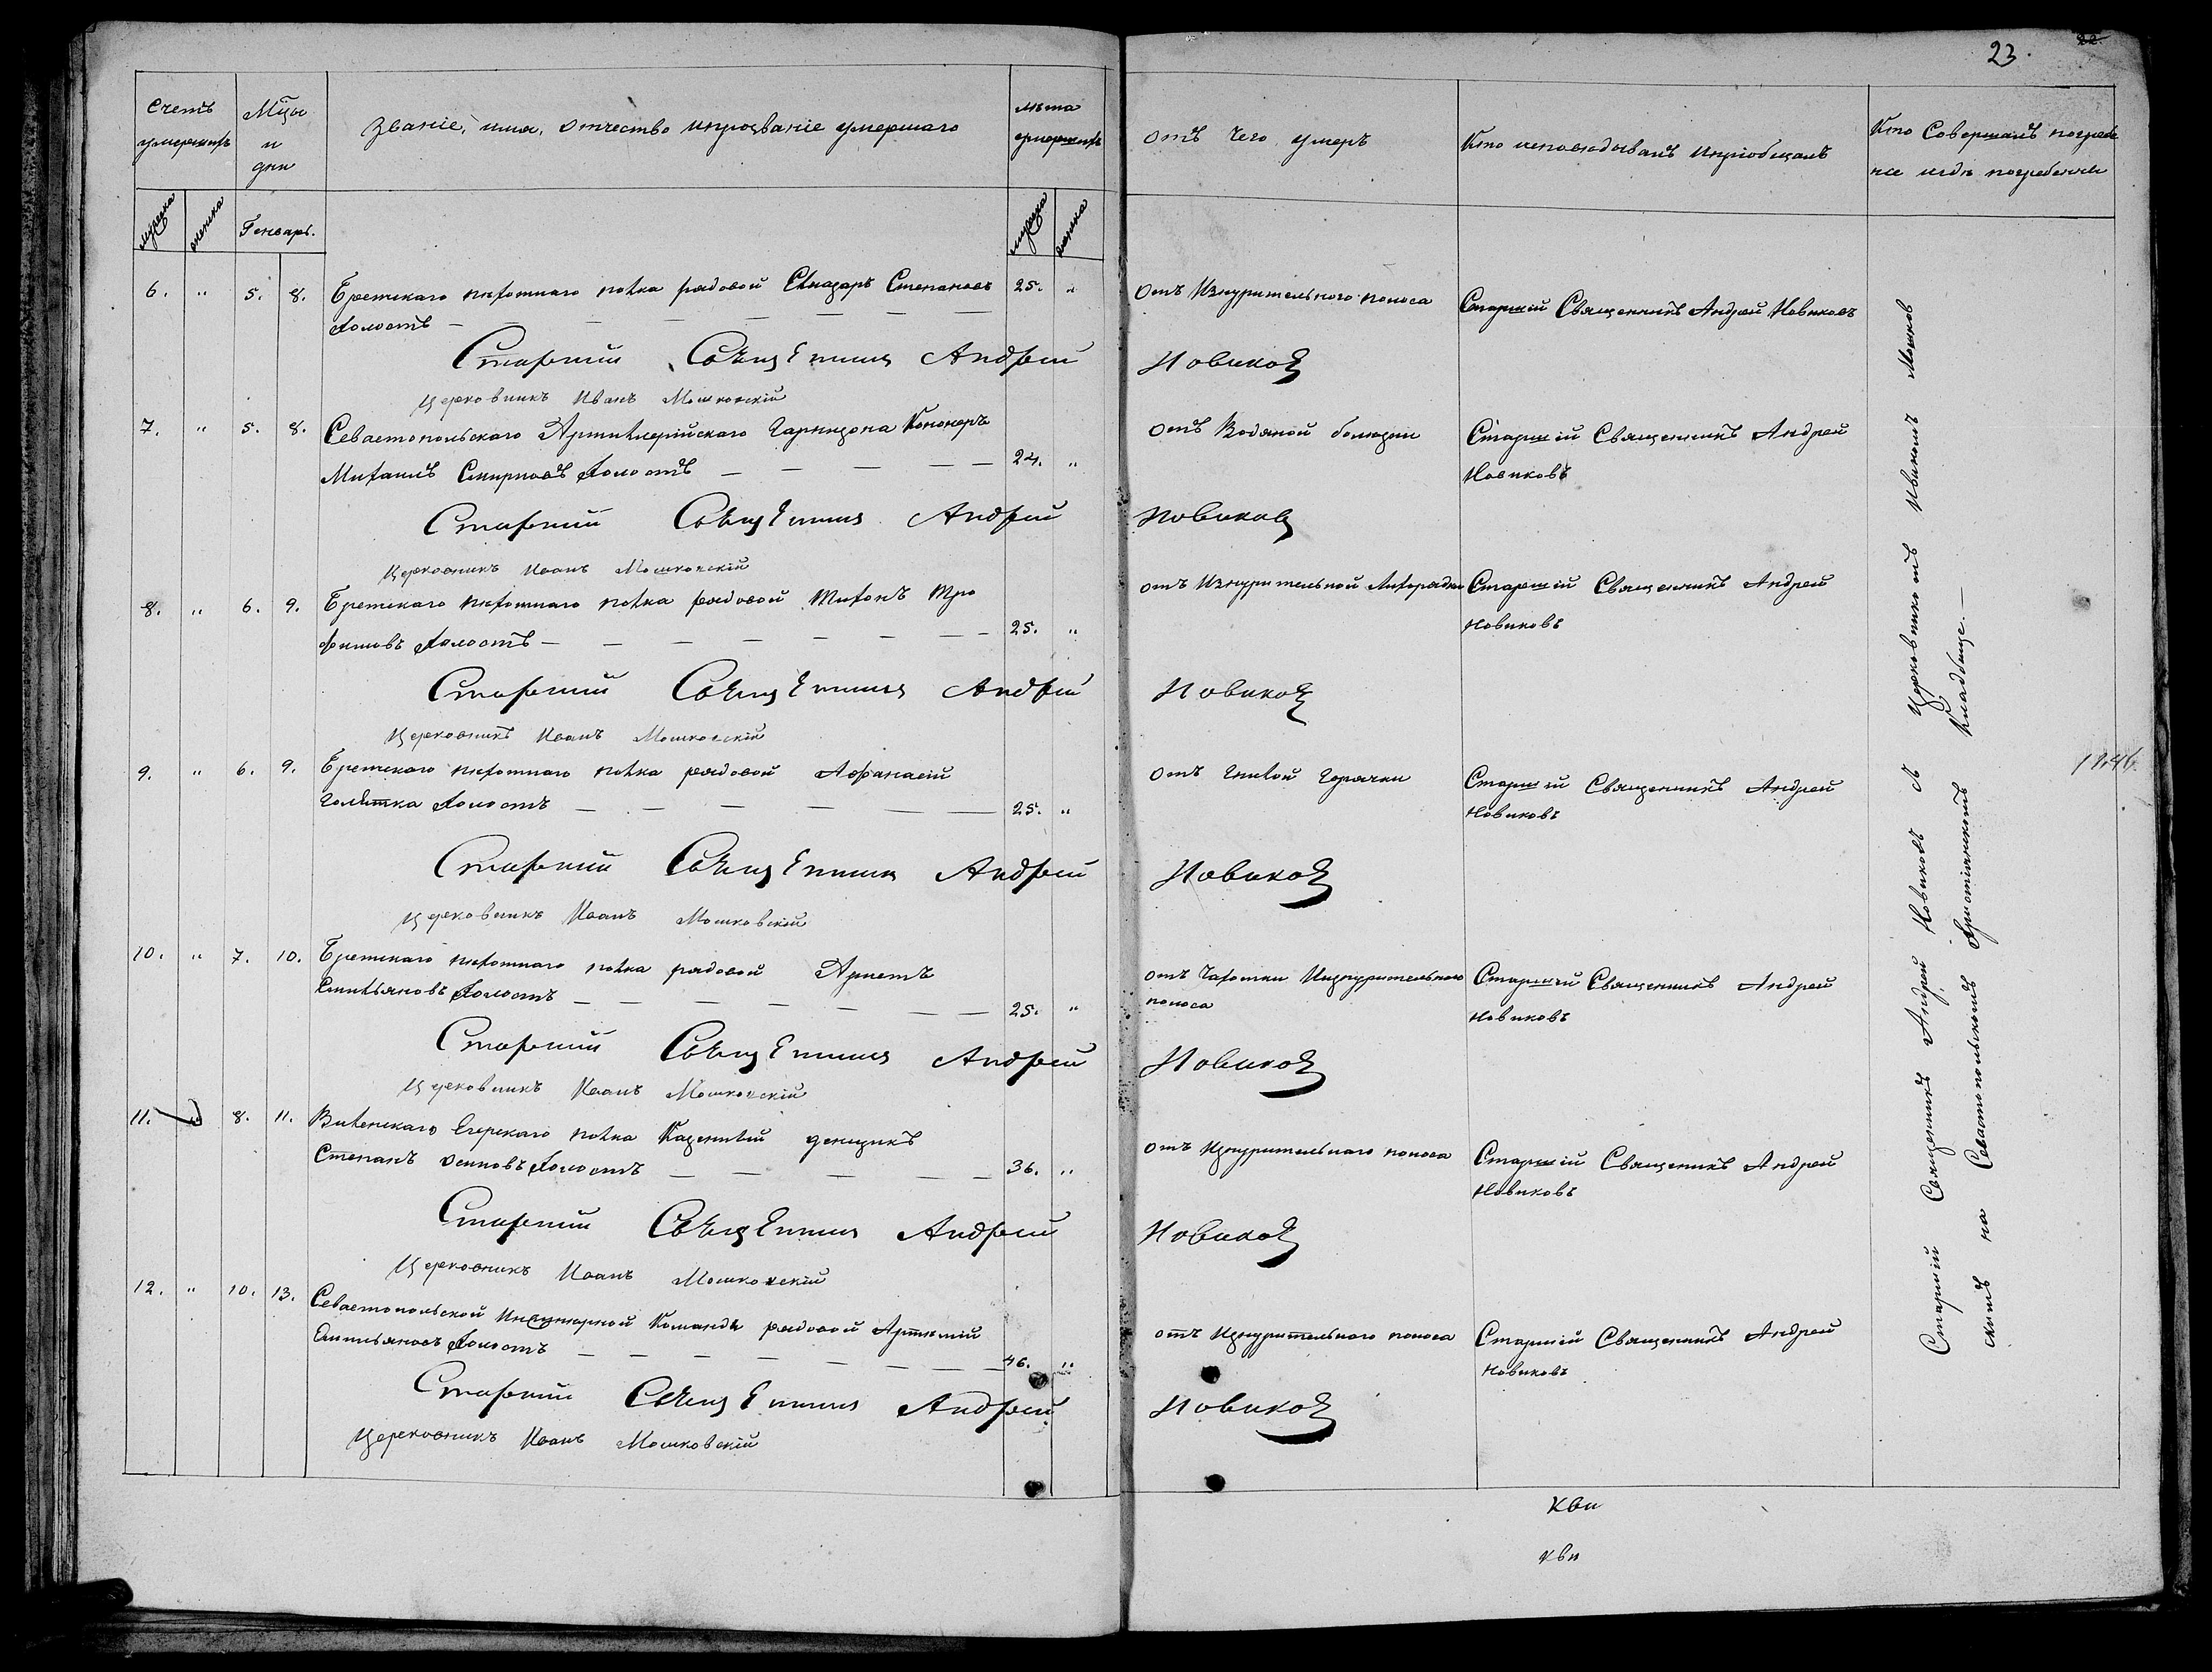 23.
22.
Счетъ умершихъ
Мѣсяцы и дни
Званіе, имя, отчество и прозваніе умершаго
лѣта умершихъ
отъ чего умеръ
Кто исповѣдывалъ и пріобщалъ
Кто Совершалъ погребе
ніе и гдѣ погребенъ
мужеска
женска
Генварь.
мужеска
женска
6. " 5. 8. Брестскаго пѣхотнаго полка рядовой Степановъ 25. "
холостъ — — — — — — —
отъ Изнурительного поноса
Старшій Священникъ Андрей Новиковъ
Старшій Священникъ Андрей Новиковъ
Церковникъ Иванъ Мошковскій
7. " 5. 8. Севастопольскаго Артиллерійскаго Гарнизона Кононеръ
Михаилъ Смирновъ холостъ — — — — — 24. "
отъ Водяной болѣзни
Старшій Священникъ Андрей
Новиковъ
Старшій Священникъ Андрей Новиковъ
Церковникъ Иванъ Мошковскій
8. " 6. 9. Брестскаго пѣхотнаго полка рядовой Тихонъ Тро
фимовъ холостъ — — — — — — — 25. "
отъ Изнурительной Лихорадки
Старшій Священникъ Андрей
Новиковъ
Старшій Священникъ Андрей Новиковъ
Церковникъ Иванъ Мошковскій
9. " 6. 9. Брестскаго пѣхотнаго полка рядовой Афанасій
холостъ — — — — — — 25. "
отъ Гнилой Горячки
Старшій Священникъ Андрей
Новиковъ
Старшій Священникъ Андрей Новиковъ
Церковникъ Иванъ Мошковскій
1846.
10. " 7. 10. Брестскаго пѣхотнаго полка рядовой
Емильяновъ холостъ — — — — — — — 25. "
отъ Чахотки Изнурительного
поноса
Старшій Священникъ Андрей
Новиковъ
Старшій Священникъ Андрей Новиковъ
Церковникъ Иванъ Мошковскій
11. " 8. 11. Виленскаго Егерскаго полка Казенный денщикъ
Степанъ Осиповъ холостъ — — — — — 36. "
отъ Изнурительнаго поноса
Старшій Священикъ Андрей
Новиковъ
Старшій Священникъ Андрей Новиковъ
Церковникъ Иванъ Мошковскій
12. " 10. 13. Севастопольской Инженерной Команды рядовой Артемій
Емильяновъ холостъ — — — — — — — — 46. "
отъ Изнурительного поноса
Старшій Священникъ Андрей
Новиковъ
Старшій Священникъ Андрей Новиковъ
Церковникъ Иванъ Мошковскій
Старшій Священникъ Андрей Новиковъ съ Церковникомъ Иваномъ Мошков
скимъ на Севастопольскомъ Христіянскомъ Кладбище. —
кви
кви